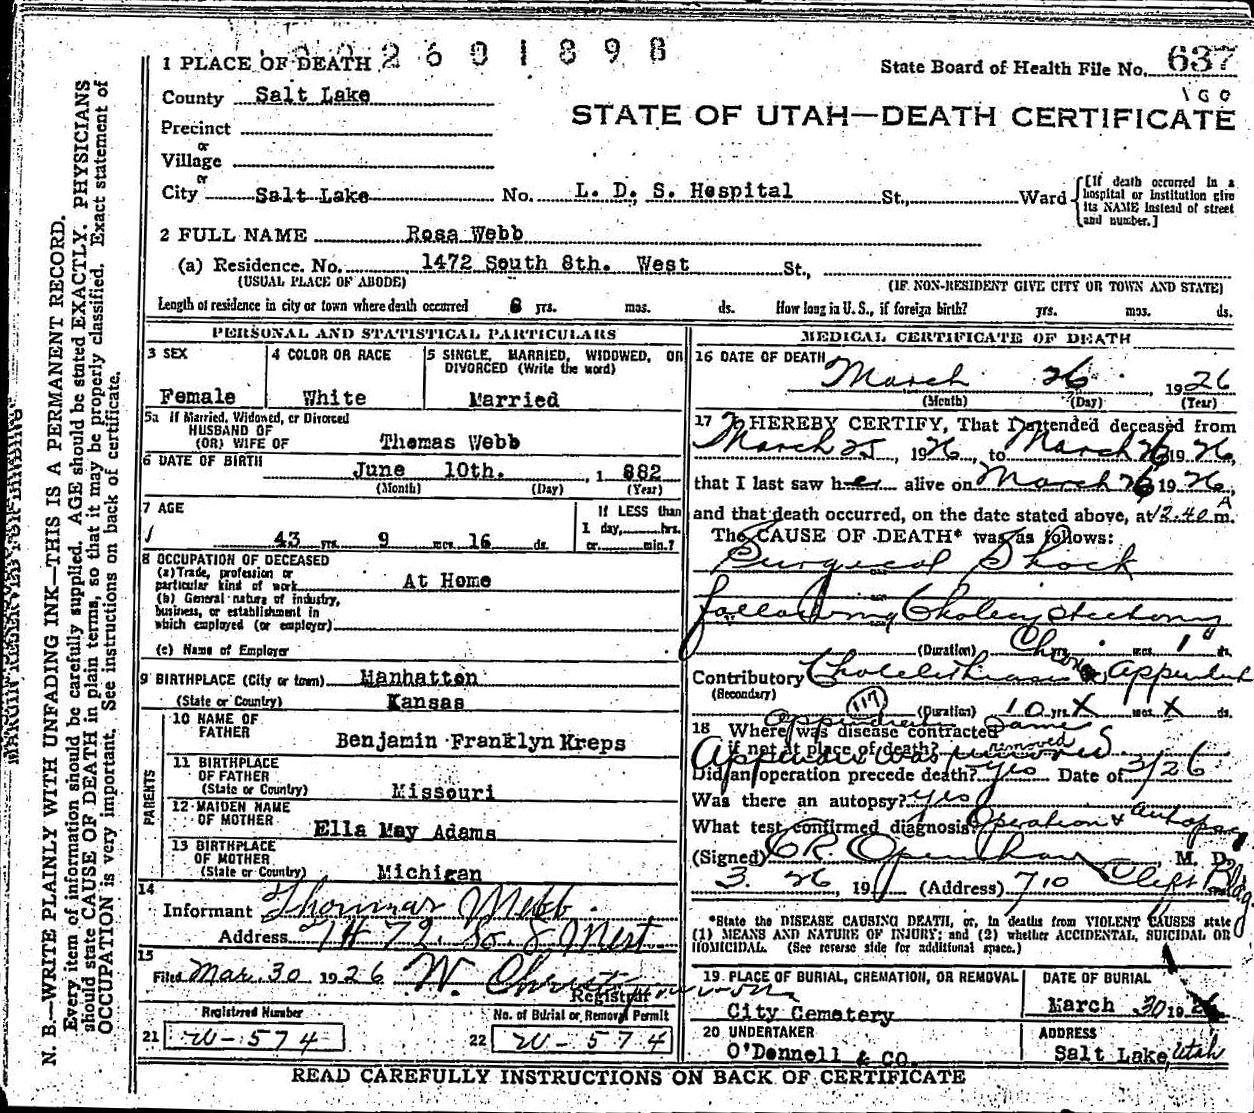 2601898
1 PLACE OF DEATH
State Board of Health File No. 637
County Salt Lake
160
STATE OF UTAH—DEATH CERTIFICATE
Precinct
or
Village
or
City Salt Lake No. L. D. S. Hospital St., Ward
[If death occurred in a hospital or institution give its NAME instead of street and number.]
2 FULL NAME Rosa Webb
(a) Residence. No. 1472 South 8th. West St.,
(USUAL PLACE OF ABODE) (IF NON-RESIDENT GIVE CITY OR TOWN AND STATE)
Length of residence in city or town where death occurred 8 yrs. mos. ds. How long in U. S., if foreign birth? yrs. mos. ds.
PERSONAL AND STATISTICAL PARTICULARS
3 SEX
Female
4 COLOR OR RACE
White
5 SINGLE, MARRIED, WIDOWED, OR DIVORCED (Write the word)
Married
5a If Married, Widowed, or Divorced
HUSBAND OF
(OR) WIFE OF Thomas Webb
6 DATE OF BIRTH June 10th. , 1 882
(Month) (Day) (Year)
7 AGE
43 yrs. 9 mos. 16 ds.
If LESS than
1 day, hrs.
or min.?
8 OCCUPATION OF DECEASED
(a) Trade, profession or
particular kind of work At Home
(b) General nature of industry,
business, or establishment in
which employed (or employer)
(c) Name of Employer
9 BIRTHPLACE (City or town) Manhatton
(State or Country) Kansas
PARENTS
10 NAME OF
FATHER Benjamin Franklyn Kreps
11 BIRTHPLACE
OF FATHER
(State or Country) Missouri
12 MAIDEN NAME
OF MOTHER Ella May Adams
13 BIRTHPLACE
OF MOTHER
(State or Country) Michigan
14
Informant Thomas Webb
Address 1472 So. 8 West
15
Filed Mar. 30 1926 W.
Registrar
Registered Number
21 W-574
No. of Burial or Removal Permit
22 W-574
MEDICAL CERTIFICATE OF DEATH
16 DATE OF DEATH
March 26 , 1926
(Month) (Day) (Year)
17 I HEREBY CERTIFY, That I attended deceased from
March 25, 1926, to March 26 1926,
that I last saw her alive on March 26 1926,
and that death occurred, on the date stated above, at 12.40 A m.
The CAUSE OF DEATH* was as follows:
Surgical Shock
following Cholecystectomy
(Duration) yrs. mos. 1 ds.
Contributory Cholelithiasis & Chronic
(Secondary)
117
(Duration) 10 yrs. X mos. X ds.
18 Where was disease contracted
if not at place of death? Same
Appendix was removed
Did an operation precede death? yes Date of 3/26
Was there an autopsy? yes
What test confirmed diagnosis? Operation & autopsy
(Signed) , M. D.
3. 26, 19 (Address) 710 Clift Bldg
*State the DISEASE CAUSING DEATH, or, in deaths from VIOLENT CAUSES state
(1) MEANS AND NATURE OF INJURY; and (2) whether ACCIDENTAL, SUICIDAL OR
HOMICIDAL. (See reverse side for additional space.)
19 PLACE OF BURIAL, CREMATION, OR REMOVAL
City Cemetery
DATE OF BURIAL
March 30 1926
20 UNDERTAKER
O'Donnell & CO.
ADDRESS
Salt Lake, Utah
READ CAREFULLY INSTRUCTIONS ON BACK OF CERTIFICATE
MARGIN RESERVED FOR BINDING
N. B.—WRITE PLAINLY WITH UNFADING INK—THIS IS A PERMANENT RECORD.
Every item of information should be carefully supplied. AGE should be stated EXACTLY. PHYSICIANS
should state CAUSE OF DEATH in plain terms, so that it may be properly classified. Exact statement of
OCCUPATION is very important. See instructions on back of certificate.